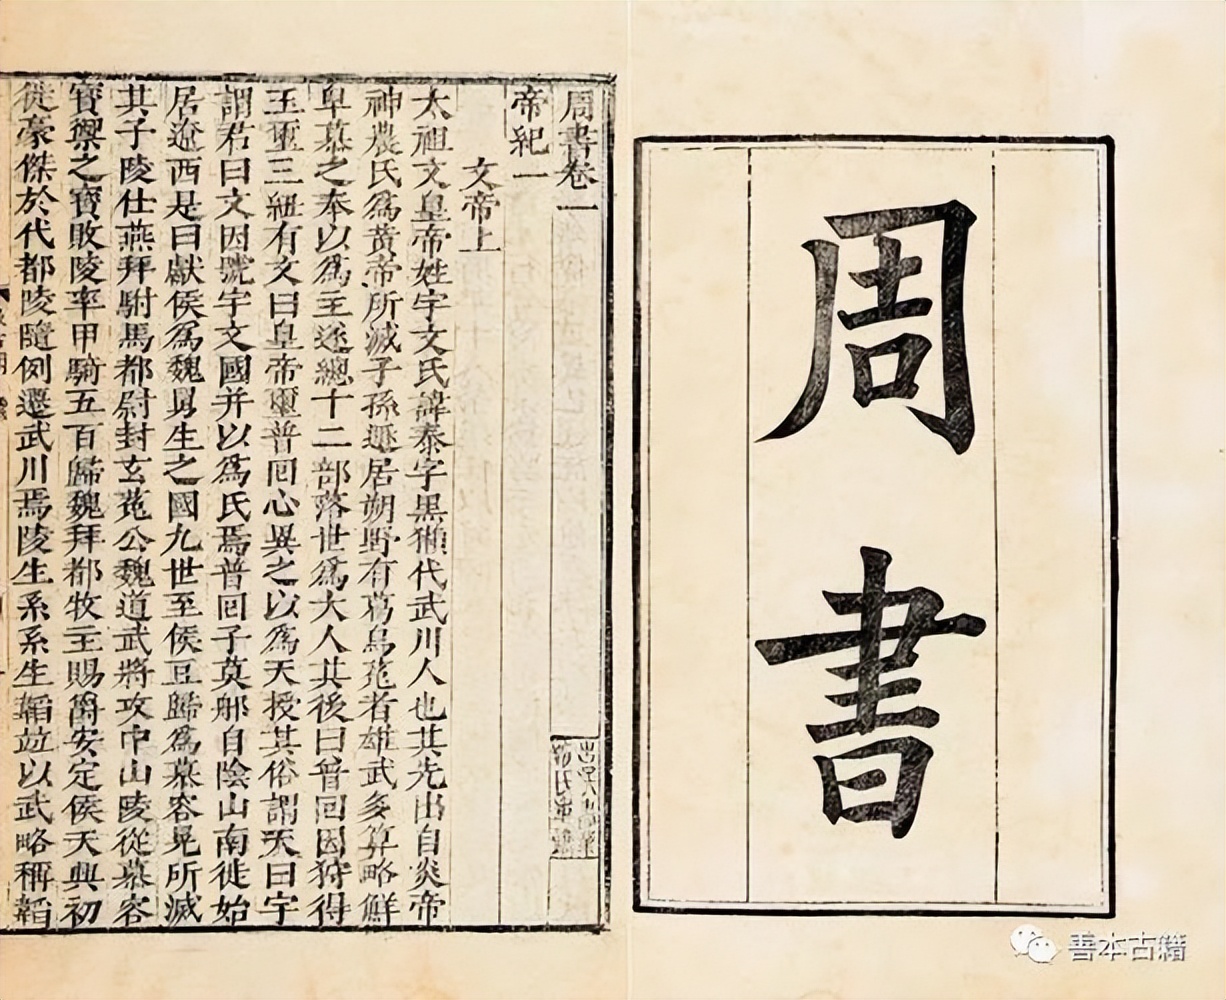 周書
周書卷一
帝紀一
文帝上
太祖文皇帝姓宇文氏諱泰字黑獺代武川人也其先出自炎帝
神農氏爲黃帝所滅子孫遯居朔野有葛烏菟者雄武多算略鮮
卑慕之奉以爲主遂總十二部落世爲大人其後曰普回因狩得
玉璽三紐有文曰皇帝璽普回心異之以爲天授其俗謂天曰宇
謂君曰文因號宇文國并以爲氏焉普回子莫郍自陰山南徙始
居遼西是曰獻侯爲魏舅生之國九世至侯豆歸爲慕容晃所滅
其子陵仕燕拜駙馬都尉封玄菟公魏道武將攻中山陵從慕容
寶禦之寶敗陵率甲騎五百歸魏拜都牧主賜爵安定侯天興初
徙豪傑於代都陵隨例遷武川焉陵生系系生韜竝以武略稱韜
善本古籍